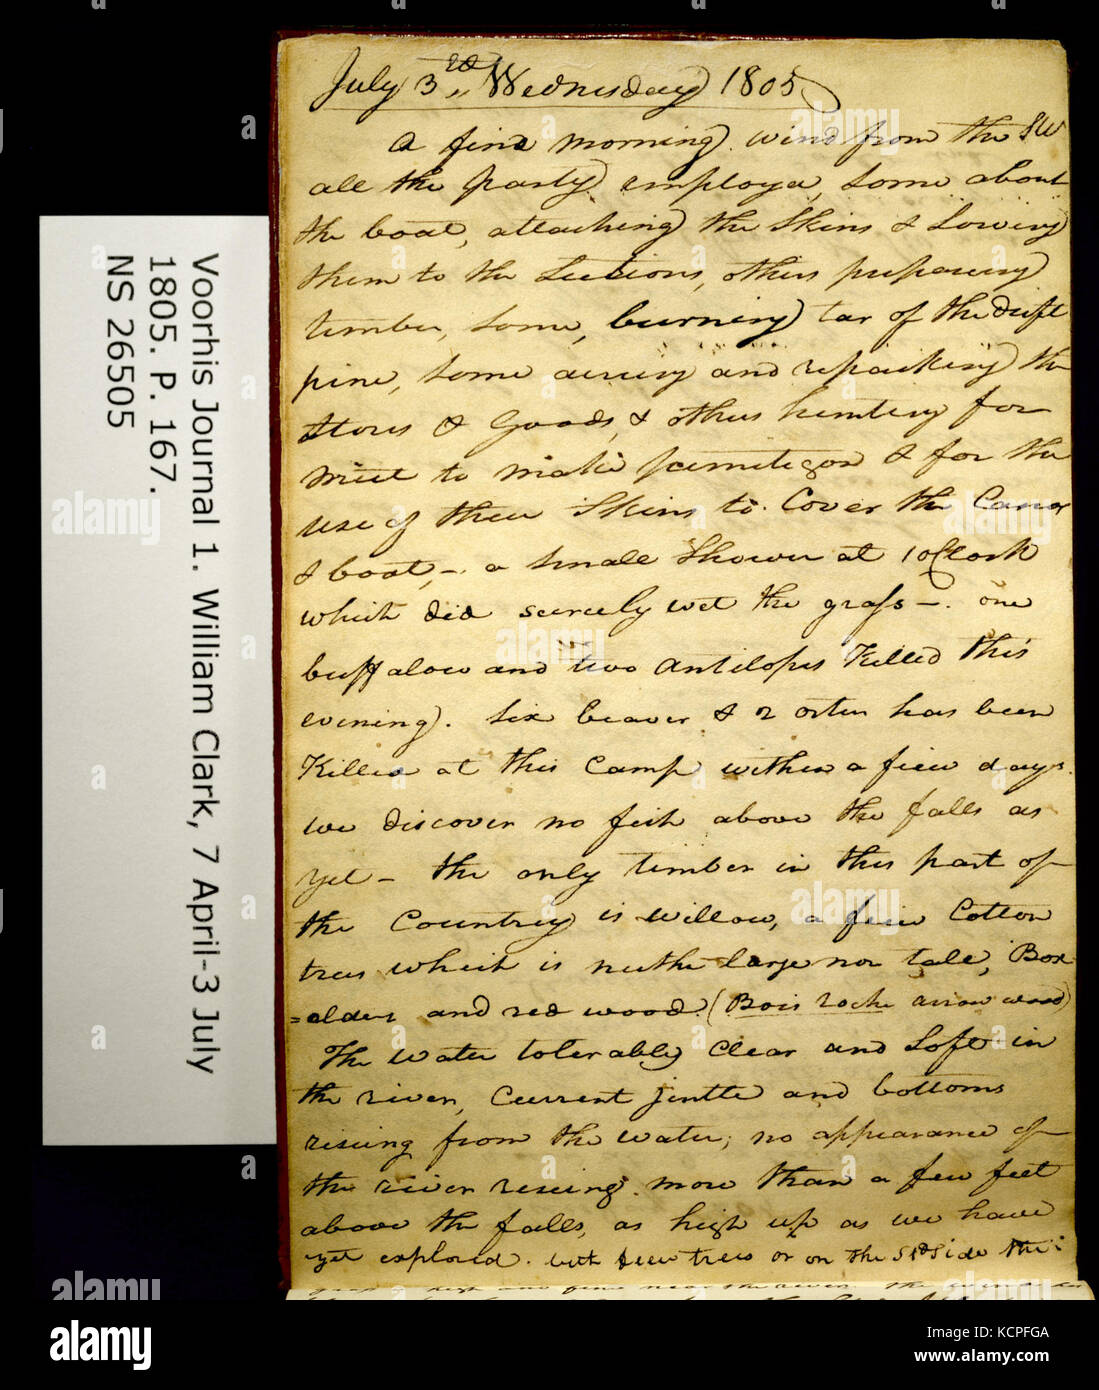 July 3rd Wednesday 1805
a fine morning wind from the SW
all the party employd, some about
the boat, attaching the Skins & Sowing
them to the Sections, others prepareing
timber, some, burning tar of the drift
pine, some airing and repacking the
stores & Goods, & others hunting for
Meet to make pemitigon & for the
use of their Skins to Cover the Canoe
& boat,-. a small Shower at 1 oClock
which did scercely wet the grass-. one
buffalow and two Antilopes Killed this
evening. Six beaver & 2 orters has been
Killed at this Camp within a fiew days.
we discover no fish above the falls as
yet - the only timber in this part of
the Countrey is willow, a fiew Cotton
trees which is neither large nor tall, Box
=alders and red wood. (Bois roche arrow wood)
The water tolerably clear and Soft in
the river, Current jentle and bottoms
riseing from the water; no appearance of
the river riseing more than a few feet
above the falls, as high up as we have
yet explored. but few trees on the Std Side the
grass is high and fine near the river. the
Voorhis Journal 1. William Clark, 7 April-3 July
1805. P. 167.
NS 26505
alamy
Image ID: KCPFGA
www.alamy.com